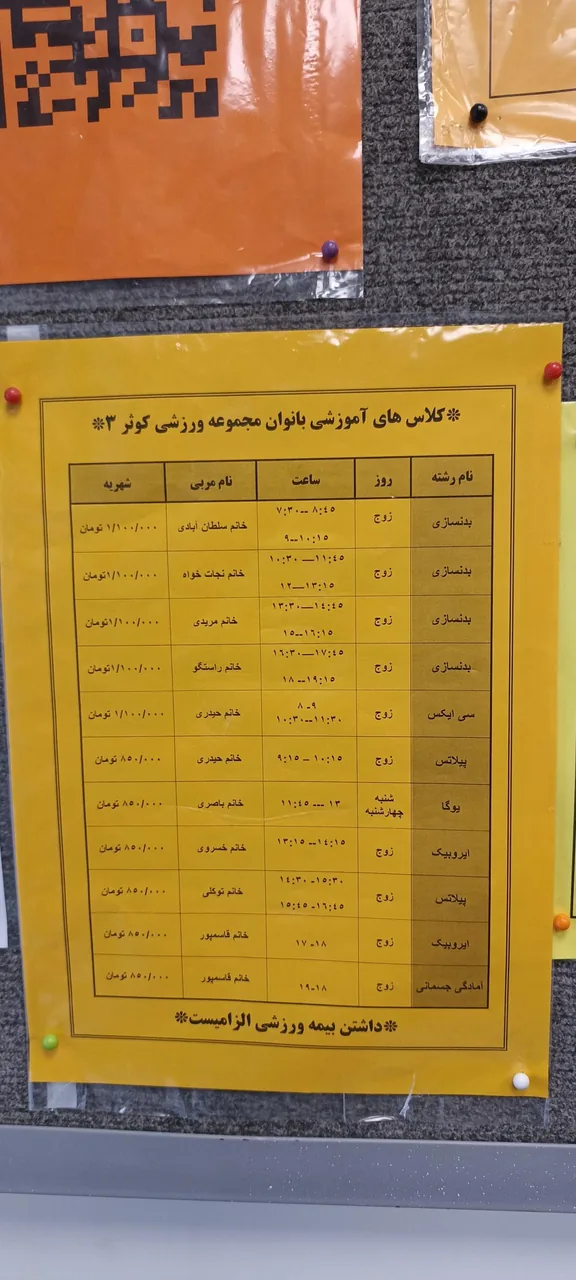 ❊کلاس های آموزشی بانوان مجموعه ورزشی کوثر ۳❊
نام رشته روز ساعت نام مربی شهریه
بدنسازی زوج ۷:۳۰--۸:۴۵ ۹--۱۰:۱۵ خانم سلطان آبادی ۱/۱۰۰/۰۰۰ تومان
بدنسازی زوج ۱۰:۳۰—۱۱:۴۵ ۱۲—۱۳:۱۵ خانم نجات خواه ۱/۱۰۰/۰۰۰تومان
بدنسازی زوج ۱۳:۳۰—۱۴:۴۵ ۱۵--۱۶:۱۵ خانم مریدی ۱/۱۰۰/۰۰۰تومان
بدنسازی زوج ۱۶:۳۰—۱۷:۴۵ ۱۸--۱۹:۱۵ خانم راستگو ۱/۱۰۰/۰۰۰تومان
سی ایکس زوج ۸-۹ ۱۰:۳۰--۱۱:۳۰ خانم حیدری ۱/۱۰۰/۰۰۰ تومان
پیلاتس زوج ۹:۱۵ – ۱۰:۱۵ خانم حیدری ۸۵۰/۰۰۰ تومان
یوگا شنبه چهارشنبه ۱۱:۴۵ --- ۱۳ خانم باصری ۸۵۰/۰۰۰ تومان
ایروبیک زوج ۱۳:۱۵--۱۴:۱۵ خانم خسروی ۸۵۰/۰۰۰ تومان
پیلاتس زوج ۱۴:۳۰-۱۵:۳۰ ۱۵:۴۵-۱۶:۴۵ خانم توکلی ۸۵۰/۰۰۰ تومان
ایروبیک زوج ۱۷-۱۸ خانم قاسمپور ۸۵۰/۰۰۰ تومان
آمادگی جسمانی زوج ۱۸-۱۹ خانم قاسمپور ۸۵۰/۰۰۰ تومان
❊داشتن بیمه ورزشی الزامیست❊